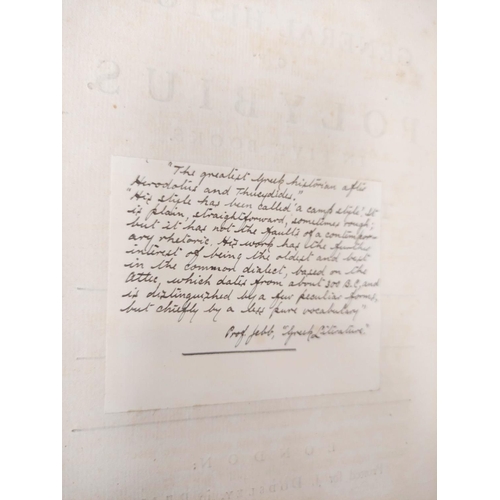 GENERAL HISTO
OF
POLYBIUS
"The greatest Greek historian after
Herodotus and Thucydides."
"His style has been called 'a camp style'. It
is plain, straightforward, sometimes rough;
but it has not the faults of a contempor-
ary rhetoric. His work has the further
interest of being the oldest and best
in the common dialect, based on the
Attic, which dates from about 300 B.C, and
is distinguished by a few peculiar forms,
but chiefly by a less pure vocabulary"
Prof. Jebb, "Greek Literature."
LONDON: